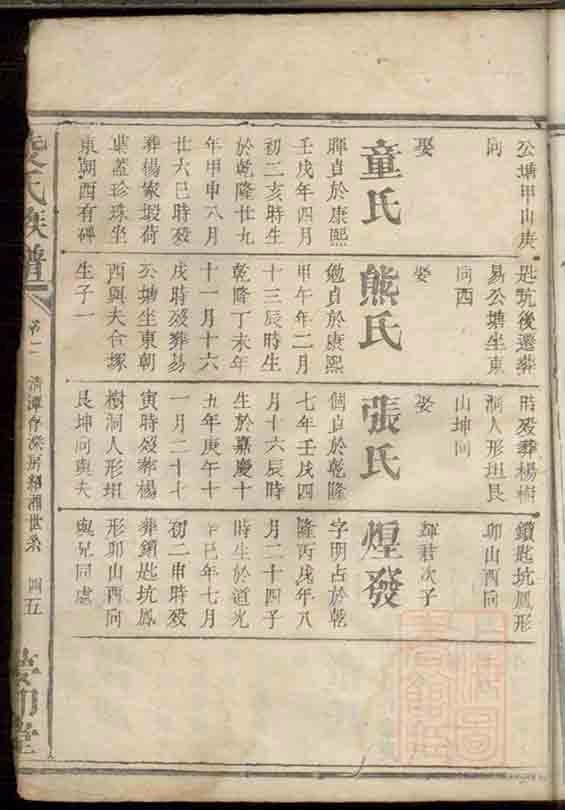 公塘甲山庚
向
娶
童氏
諢貞於康熙
壬戌年四月
初二亥時生
於乾隆廿九
年甲申八月
廿六巳時殁
葬楊家塅荷
葉蓋珍珠坐
東朝西有碑
匙坑後遷葬
易公塘坐東
向西
娶
熊氏
勉貞於康熙
甲午年二月
十三辰時生
乾隆丁未年
十一月十六
戌時殁葬易
公塘坐東朝
西與夫合塚
生子一
時殁葬楊樹
洞人形坦艮
山坤向
娶
張氏
個貞於乾隆
七年壬戌四
月十六辰時
生於嘉慶十
五年庚午十
一月二十七
寅時殁葬楊
樹洞人形坦
艮坤向與夫
鎖匙坑鳳形
卯山酉向
輝君次子
煌發
字明占於乾
隆丙戌年八
月二十四子
時生於道光
辛巳年七月
初二申時殁
葬鎖匙坑鳳
形卯山酉向
與兄同處
氏族譜
卷二
四五